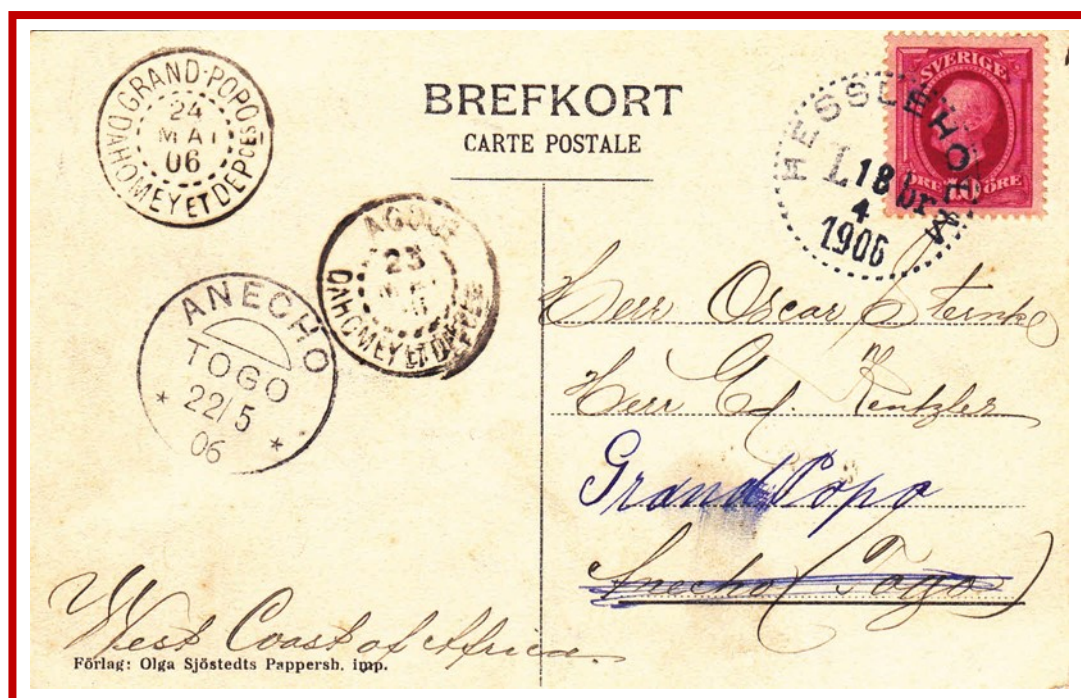 GRAND-POPO
24
MAI
06
DAHOMEY ET DEPCES
BREFKORT
CARTE POSTALE
SVERIGE
ÖRE 10 ÖRE
HESSLEHOLM
L 18 br
4
1906
AGOUE
23
DAHOMEY ET
ANECHO
TOGO
22/5
06
Herr Oscar
Herr
Grand Popo
Anecho (Togo)
West Coast of Africa.
Förlag: Olga Sjöstedts Pappersh. imp.